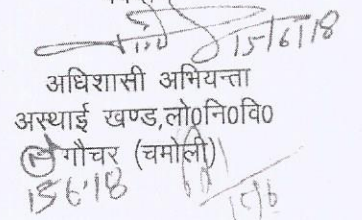 15/6/18
अधिशासी अभियन्ता
अस्थाई खण्ड,लो0नि0वि0
गौचर (चमोली)
15.6.18